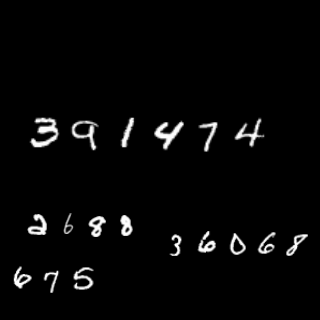 391474
2688
36068
675